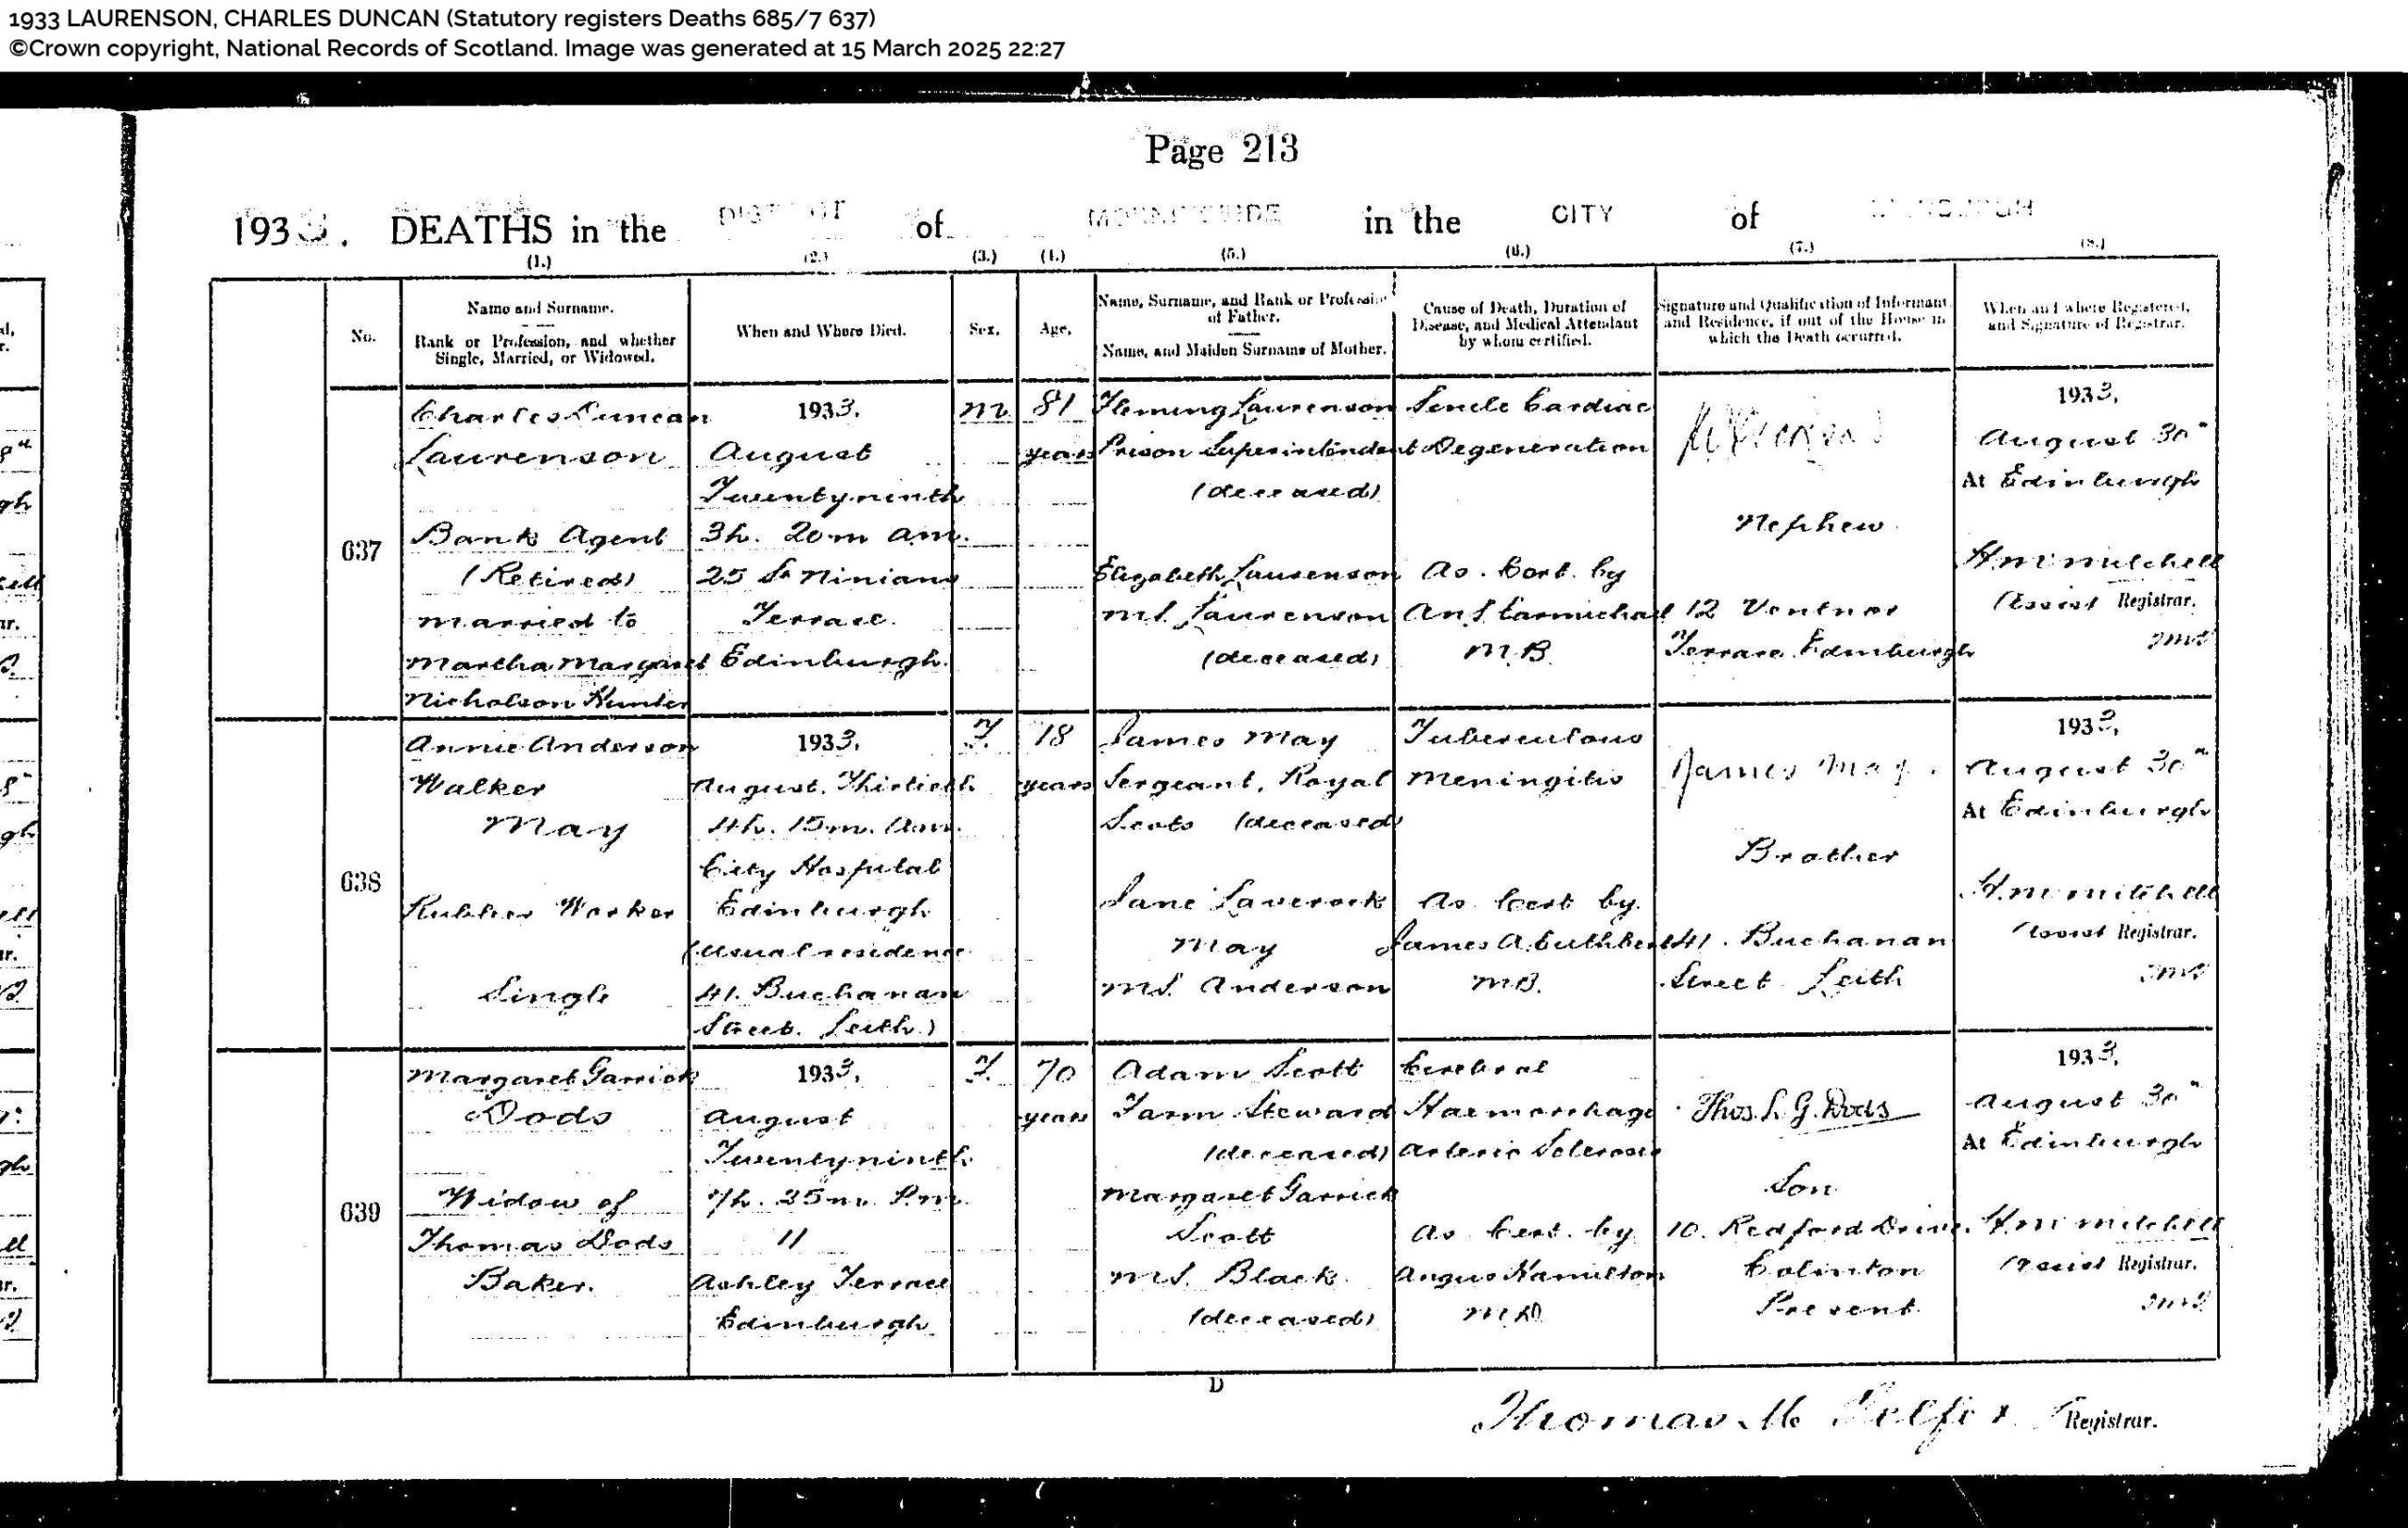 1933 LAURENSON, CHARLES DUNCAN (Statutory registers Deaths 685/7 637)
©Crown copyright, National Records of Scotland. Image was generated at 15 March 2025 22:27
Page 213
1933. DEATHS in the DISTRICT of MORNINGSIDE in the CITY of EDINBURGH
(1.) (2.) (3.) (4.) (5.) (6.) (7.) (8.)
No.
Name and Surname.
Rank or Profession, and whether
Single, Married, or Widowed.
When and Where Died.
Sex.
Age.
Name, Surname, and Rank or Profession
of Father.
Name, and Maiden Surname of Mother.
Cause of Death, Duration of
Disease, and Medical Attendant
by whom certified.
Signature and Qualification of Informant
and Residence, if out of the House in
which the Death occurred.
When and where Registered,
and Signature of Registrar.
637
Charles Duncan
Laurenson
Bank Agent
(Retired)
married to
Martha Margaret
Nicholson Hunter
1933.
August
Twentyninth
3h. 20m am.
25 St Ninians
Terrace.
Edinburgh.
M
81
years
Fleming Laurenson
Prison Superintendent
(deceased)
Elizabeth Laurenson
M.S. Laurenson
(deceased)
Senile Cardiac
Degeneration
As. Cert. by
Carmichael
M.B.
Nephew
12 Ventnor
Terrace Edinburgh
1933,
August 30"
At Edinburgh
H.M. Mitchell
Assist Registrar.
638
Annie Anderson
Walker
May
Rubber Worker
Single
1933.
August. Thirtieth
4h. 15m. am.
City Hospital
Edinburgh
(usual residence
41. Buchanan
Street. Leith.)
F.
18
years
James May
Sergeant, Royal
Scots (deceased)
Jane Laverock
May
M.S. Anderson
Tuberculous
Meningitis
As Cert by
James A. Cuthbert
M.B.
James May.
Brother
41. Buchanan
Street Leith
1933,
August 30"
At Edinburgh
H.M. Mitchell
Assist Registrar.
639
Margaret Garrick
Dods
Widow of
Thomas Dods
Baker.
1933,
August
Twentyninth
7h. 35m. P.m.
11
Ashley Terrace
Edinburgh
F.
70
years
Adam Scott
Farm Steward
(deceased)
Margaret Garrick
Scott
M.S. Black
(deceased)
Cerebral
Haemorrhage
Arterio Sclerosis
As Cert. by
Angus Hamilton
M.D.
Thos. L. G. Dods
Son
10. Redford Drive.
Colinton
Present
1933,
August 30"
At Edinburgh
H.M. Mitchell
Assist Registrar.
D
Thomas M Registrar.